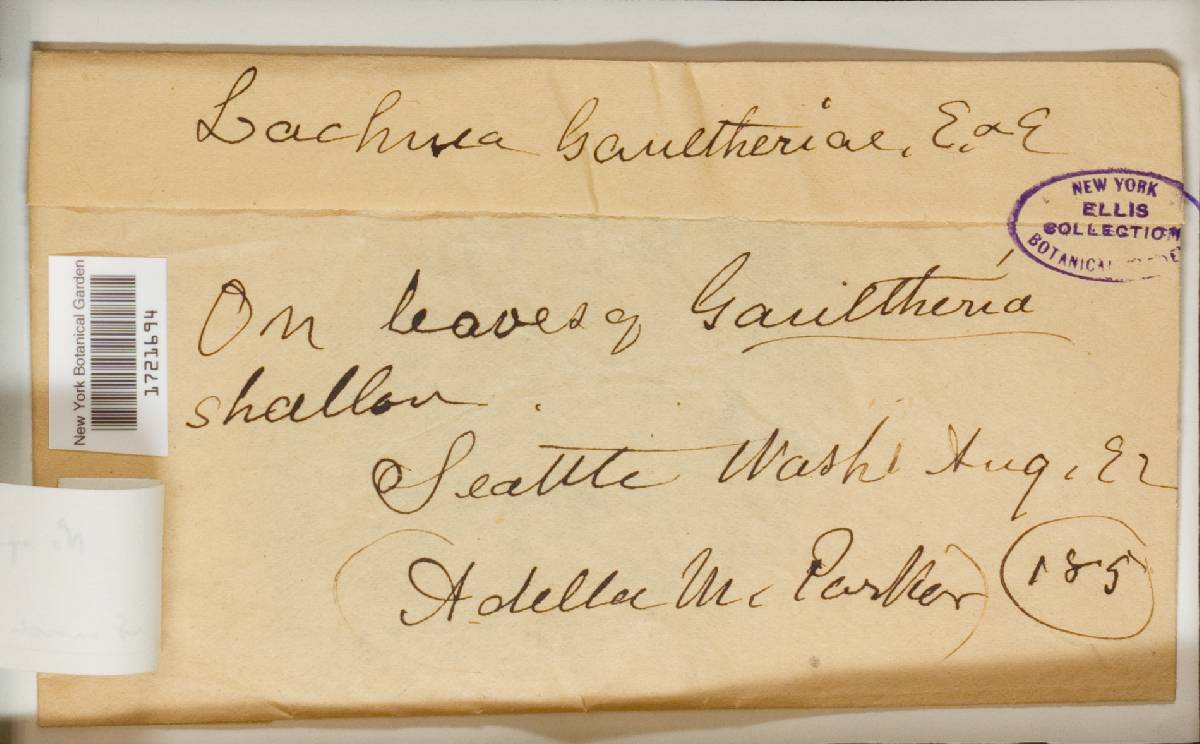 Lachnea Gaultheriae, E. & E
NEW YORK
ELLIS
COLLECTION
BOTANICAL
New York Botanical Garden
1721694
On leaves of Gaultheria
shallon.
Seattle Wash Aug.
(Adella M. Parker)
185